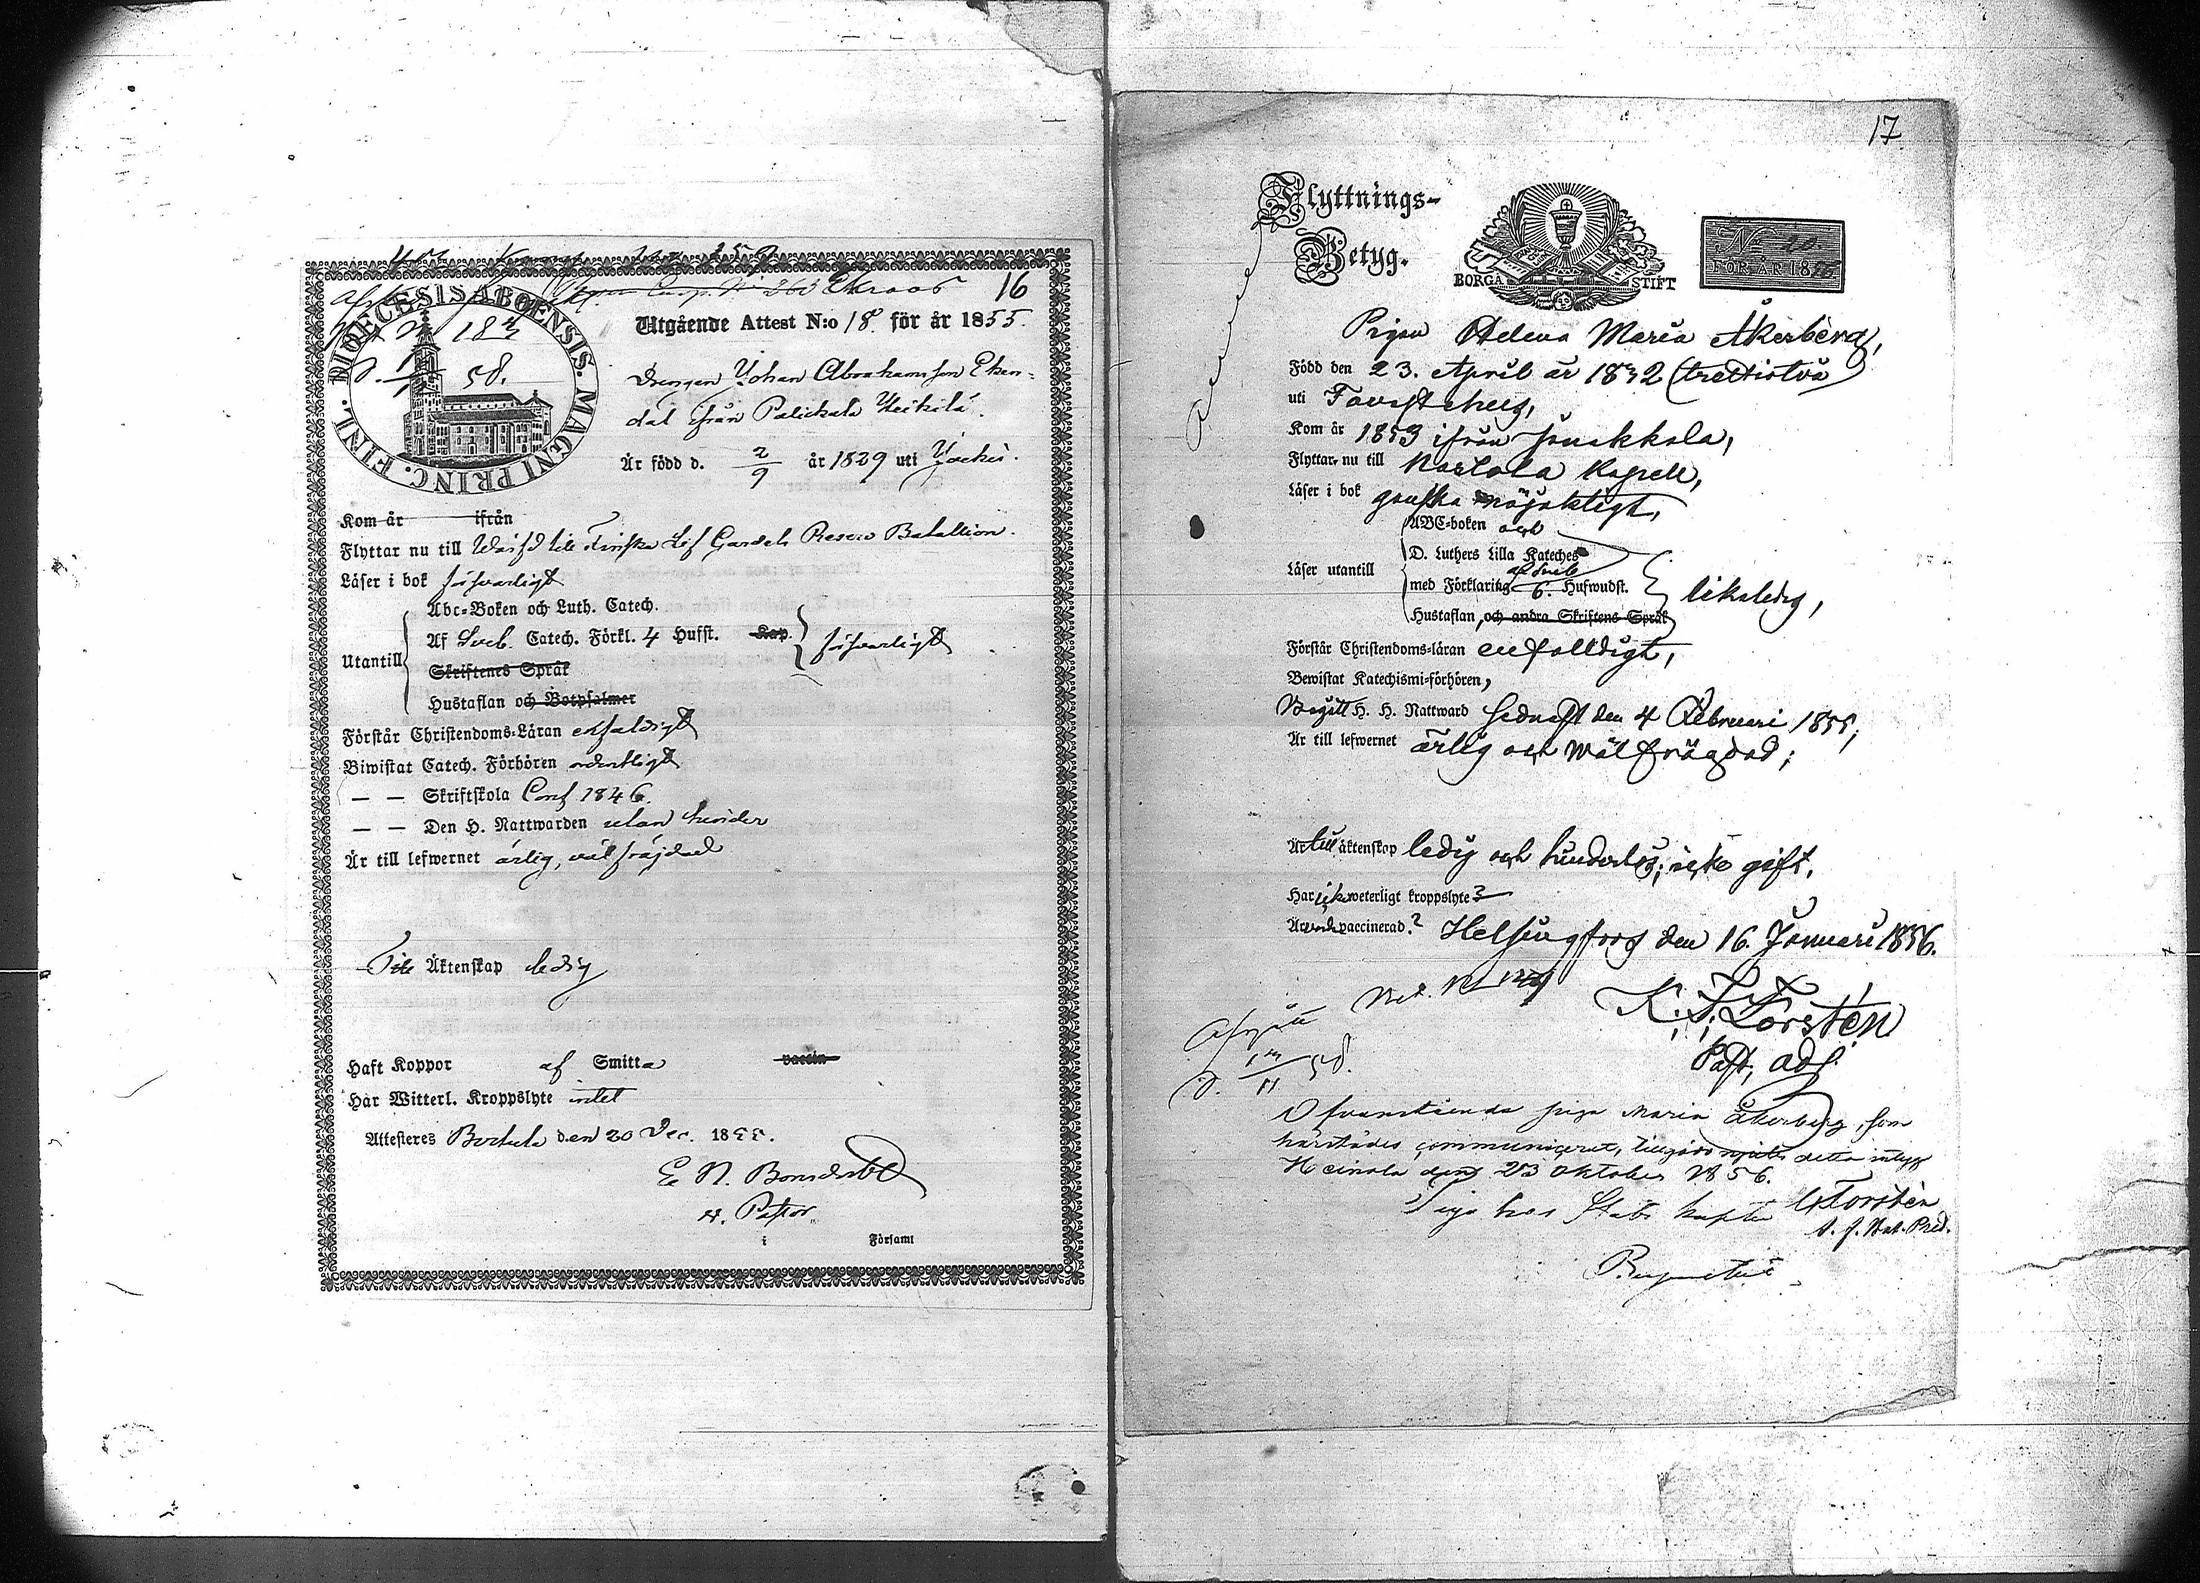 16
DIOECESIS ABOENSIS. MAGNI PRINC. FINL.
Utgående Attest N:o 18. för år 1855.
Drengen Johan Abrahamsson Eken-
dal från Palickala Heikilä.
Är född d. 2/9 år 1829 uti Jockis.
Kom år ifrån
Flyttar nu till Finska Lif Gardets Reserv Batallion.
Läser i bok försvarligt
Utantill
Abc-Boken och Luth. Catech.
Af Sveb. Catech. Förkl. 4 Hufst. Kap. försvarligt
Skriftenes Språk
Hustaflan och Botpsalmer
Förstår Christendoms-Läran enfaldigt
Biwistat Catech. Förhören ordentligt
— — Skriftskola Conf 1846.
— — Den H. Nattwarden utan hinder
Är till lefwernet ärlig, väl fräjdad
Till Äktenskap ledig
Haft Koppor af Smitta vaccin
Har Witterl. Kroppslyte intet
Attesteres den 20 Dec. 1855.
E. N.
Pastor
i Församl
17
Flyttnings-
Betyg.
BORGA STIFT
No 20
FÖR ÅR 1856
Pigan Helena Maria Åkerberg,
Född den 23. April år 1832 (trettiotvå)
uti Tavastehus,
Kom år 1853 ifrån Janakkala,
Flyttar nu till Nastola Kapell,
Läser i bok ganska nöjaktigt,
Läser utantill
ABC-boken och
D. Luthers Lilla Kateches
med Förklaring af Sveb 6. Hufwudst. likaledes,
Hustaflan, och andra Skriftens Språk
Förstår Christendoms-läran enfalldigt,
Bewistat Katechismi-förhören,
Begått H. H. Nattward sednast den 4 Februari 1855,
Är till lefwernet ärlig och wäl frägdad;
Är till äktenskap ledig och hinderlös; icke gift.
Har icke weterligt kroppslyte
Är vaccinerad. Helsingfors den 16. Januari 1856.
K. F. Forstén
Past, adj.
Afgått
d. 11 58.
Ofvanstående piga Maria Åkerberg, som
härstädes communicerat,
Heinola den 23 Oktober 1856.
Forstén
Piga hos Stabs kapten